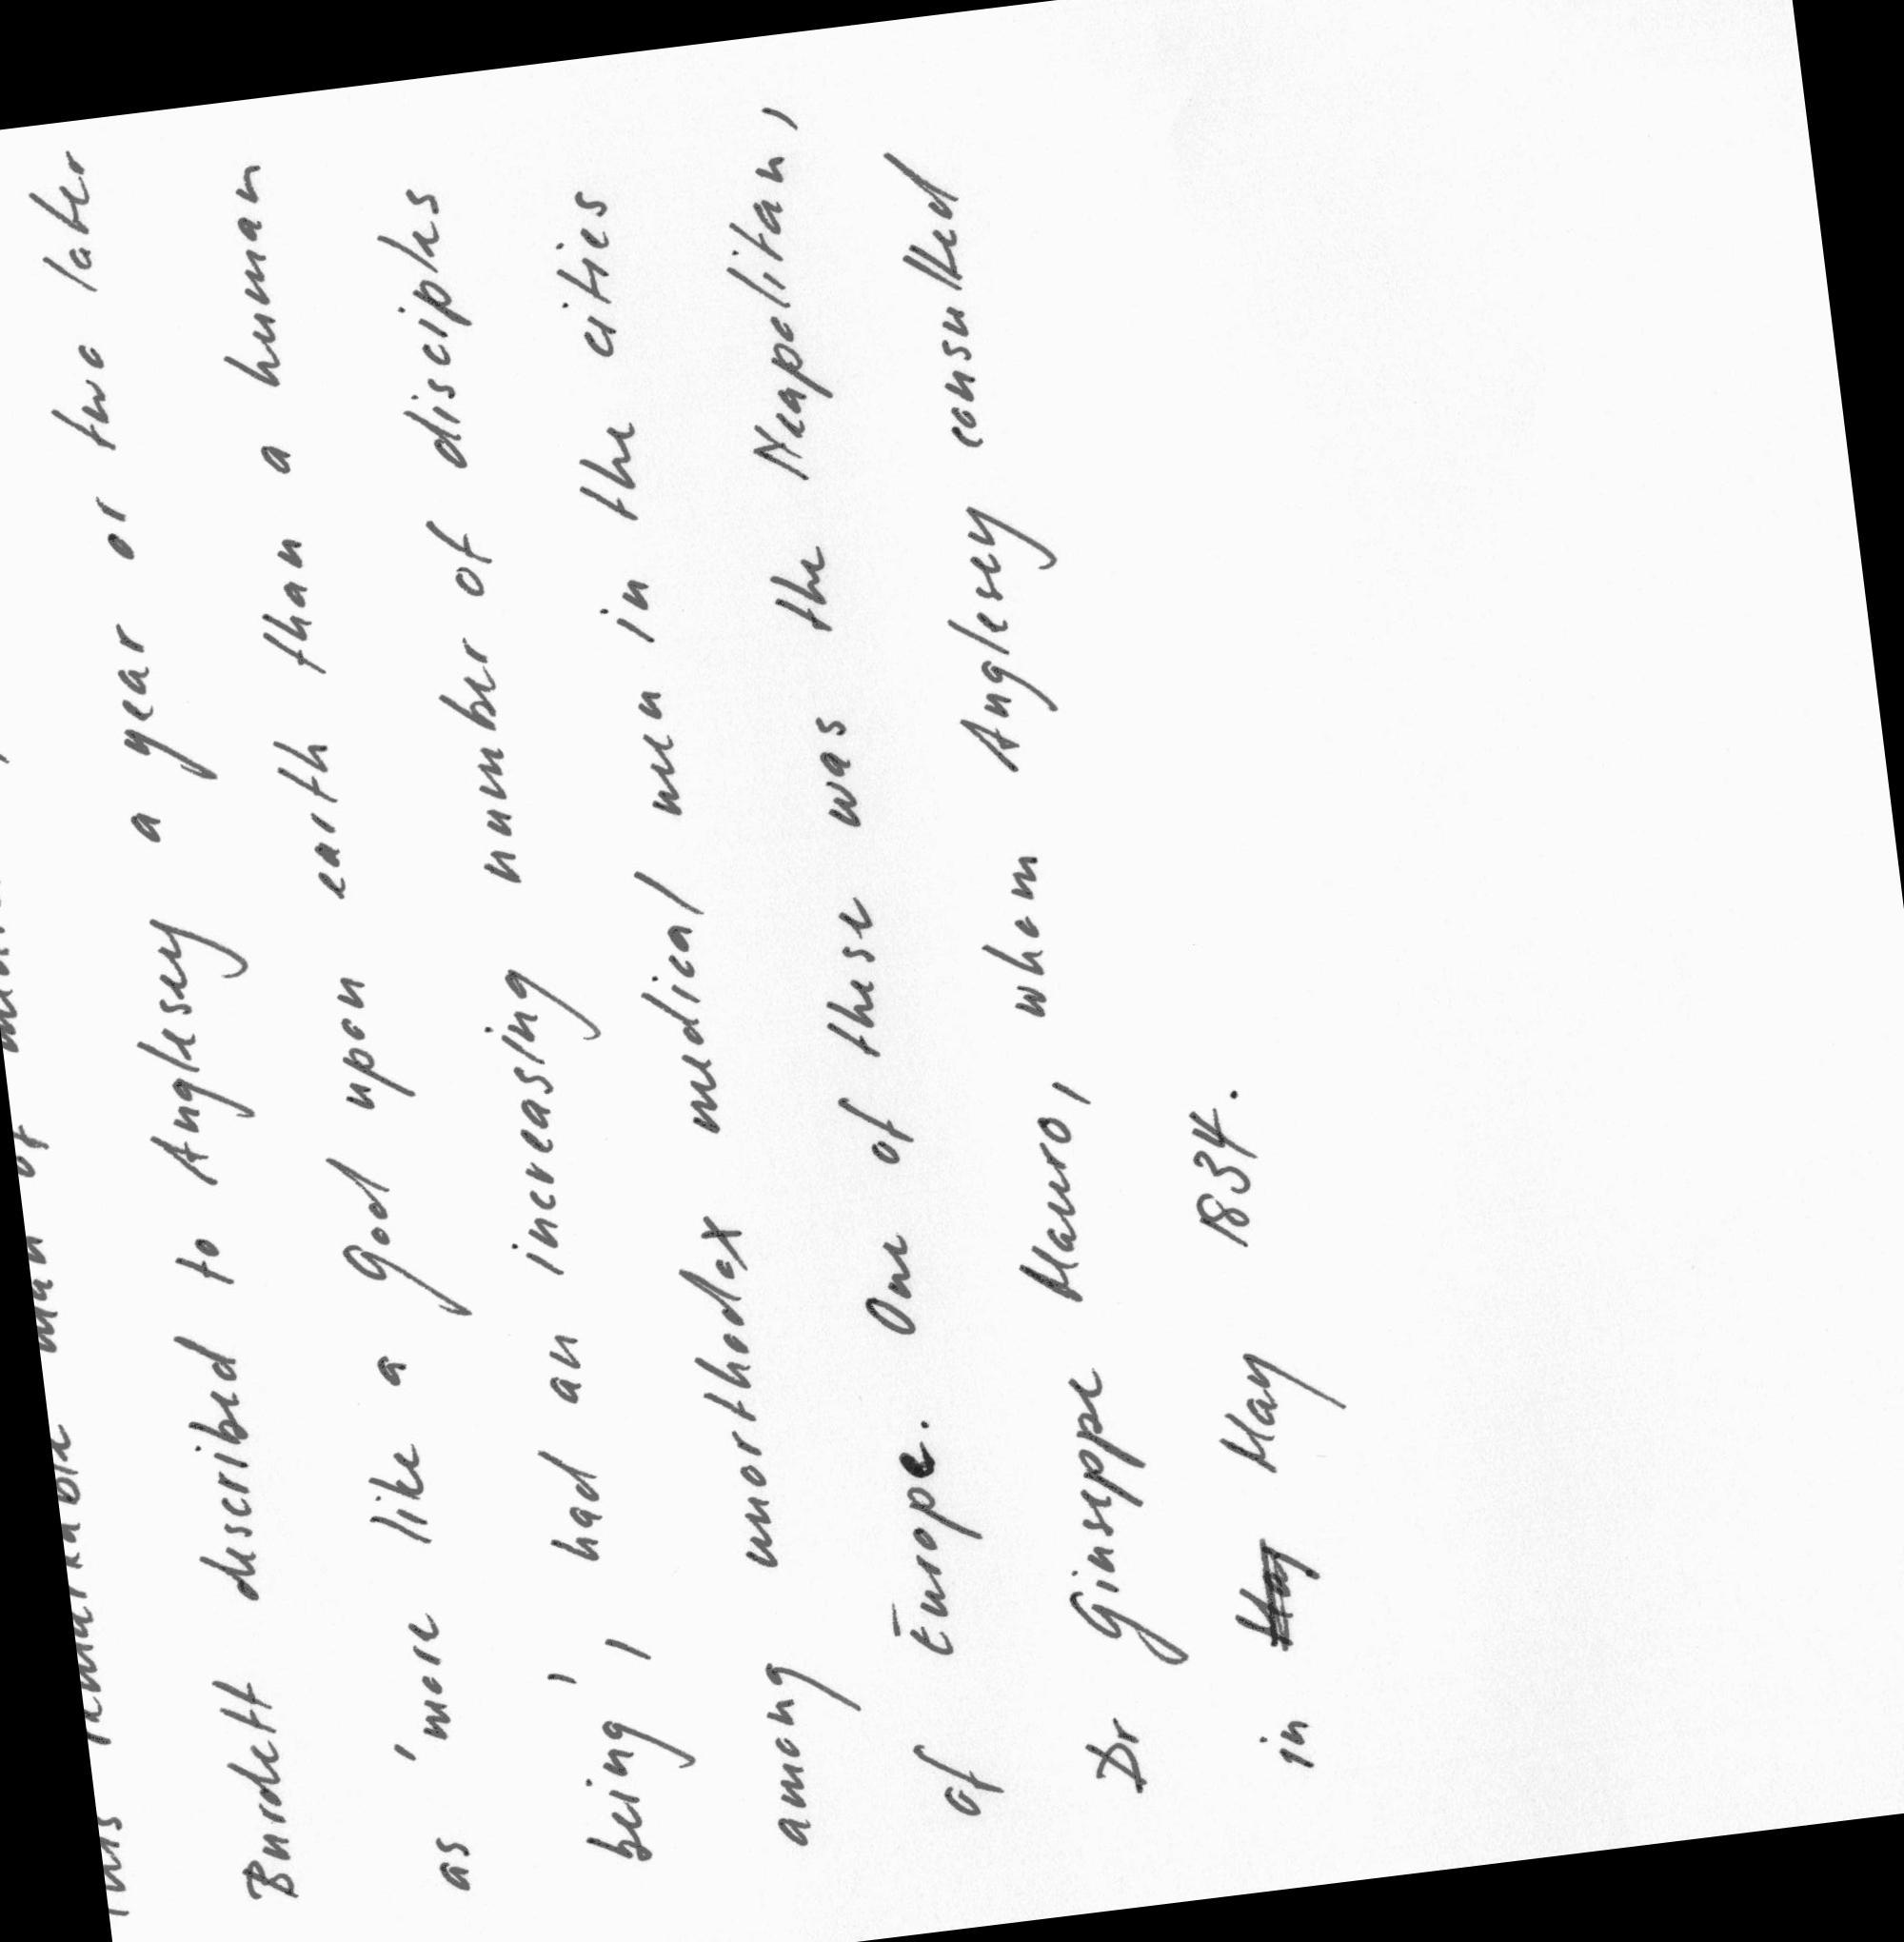 This remarkable man of
Burdett described to Anglesey a year or two later
as 'more like a God upon earth than a human
being', had an increasing number of disciples
among unorthodox medical men in the cities
of Europe. One of these was the Neapolitan,
Dr Giuseppe Mauro, whom Anglesey consulted
in May 1834.